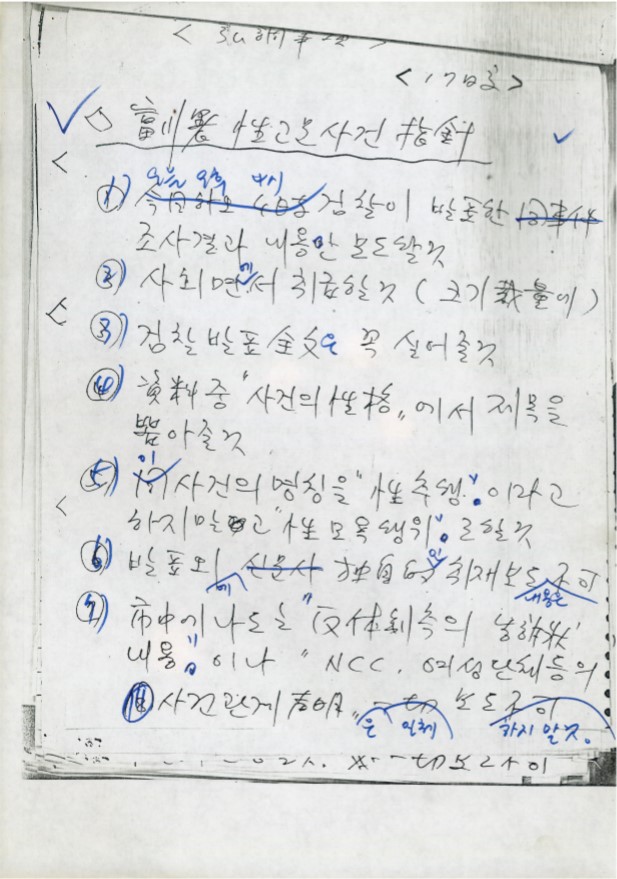 <17日>
富川署 性고문사건 指針
오늘 오후 4시
1) 검찰이 발표한
조사결과 내용만 보도할것
2) 사회면에서 취급할것 (크기 裁量에)
3) 검찰발표全文은 꼭 실어줄것
4) 資料중 "사건의 性格"에서 제목을
뽑아줄것
이
5) 사건의 명칭을 "性추행"이라고
하지말고 "性모욕행위"로 할것
6) 발표외 신문사 独自的 취재보도 不可
에 인 내용은
7) 市中에 나도는 "反体制측의 告訴狀
내용"이나 "NCC, 여성단체등의
사건관계 声明" 一切 보도不可
은 일체 하지 말것.